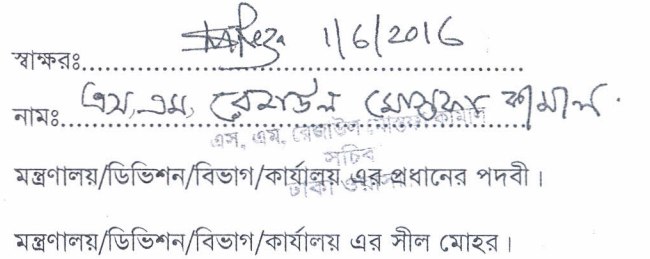 স্বাক্ষরঃ SMReza 1/6/2016
নামঃ এস, এম, রেজাউল মোস্তফা কামাল.
এস, এম, রেজাউল মোস্তফা কামাল
সচিব
মন্ত্রণালয়/ডিভিশন/বিভাগ/কার্যালয় এর প্রধানের পদবী।
ঢাকা
মন্ত্রণালয়/ডিভিশন/বিভাগ/কার্যালয় এর সীল মোহর।